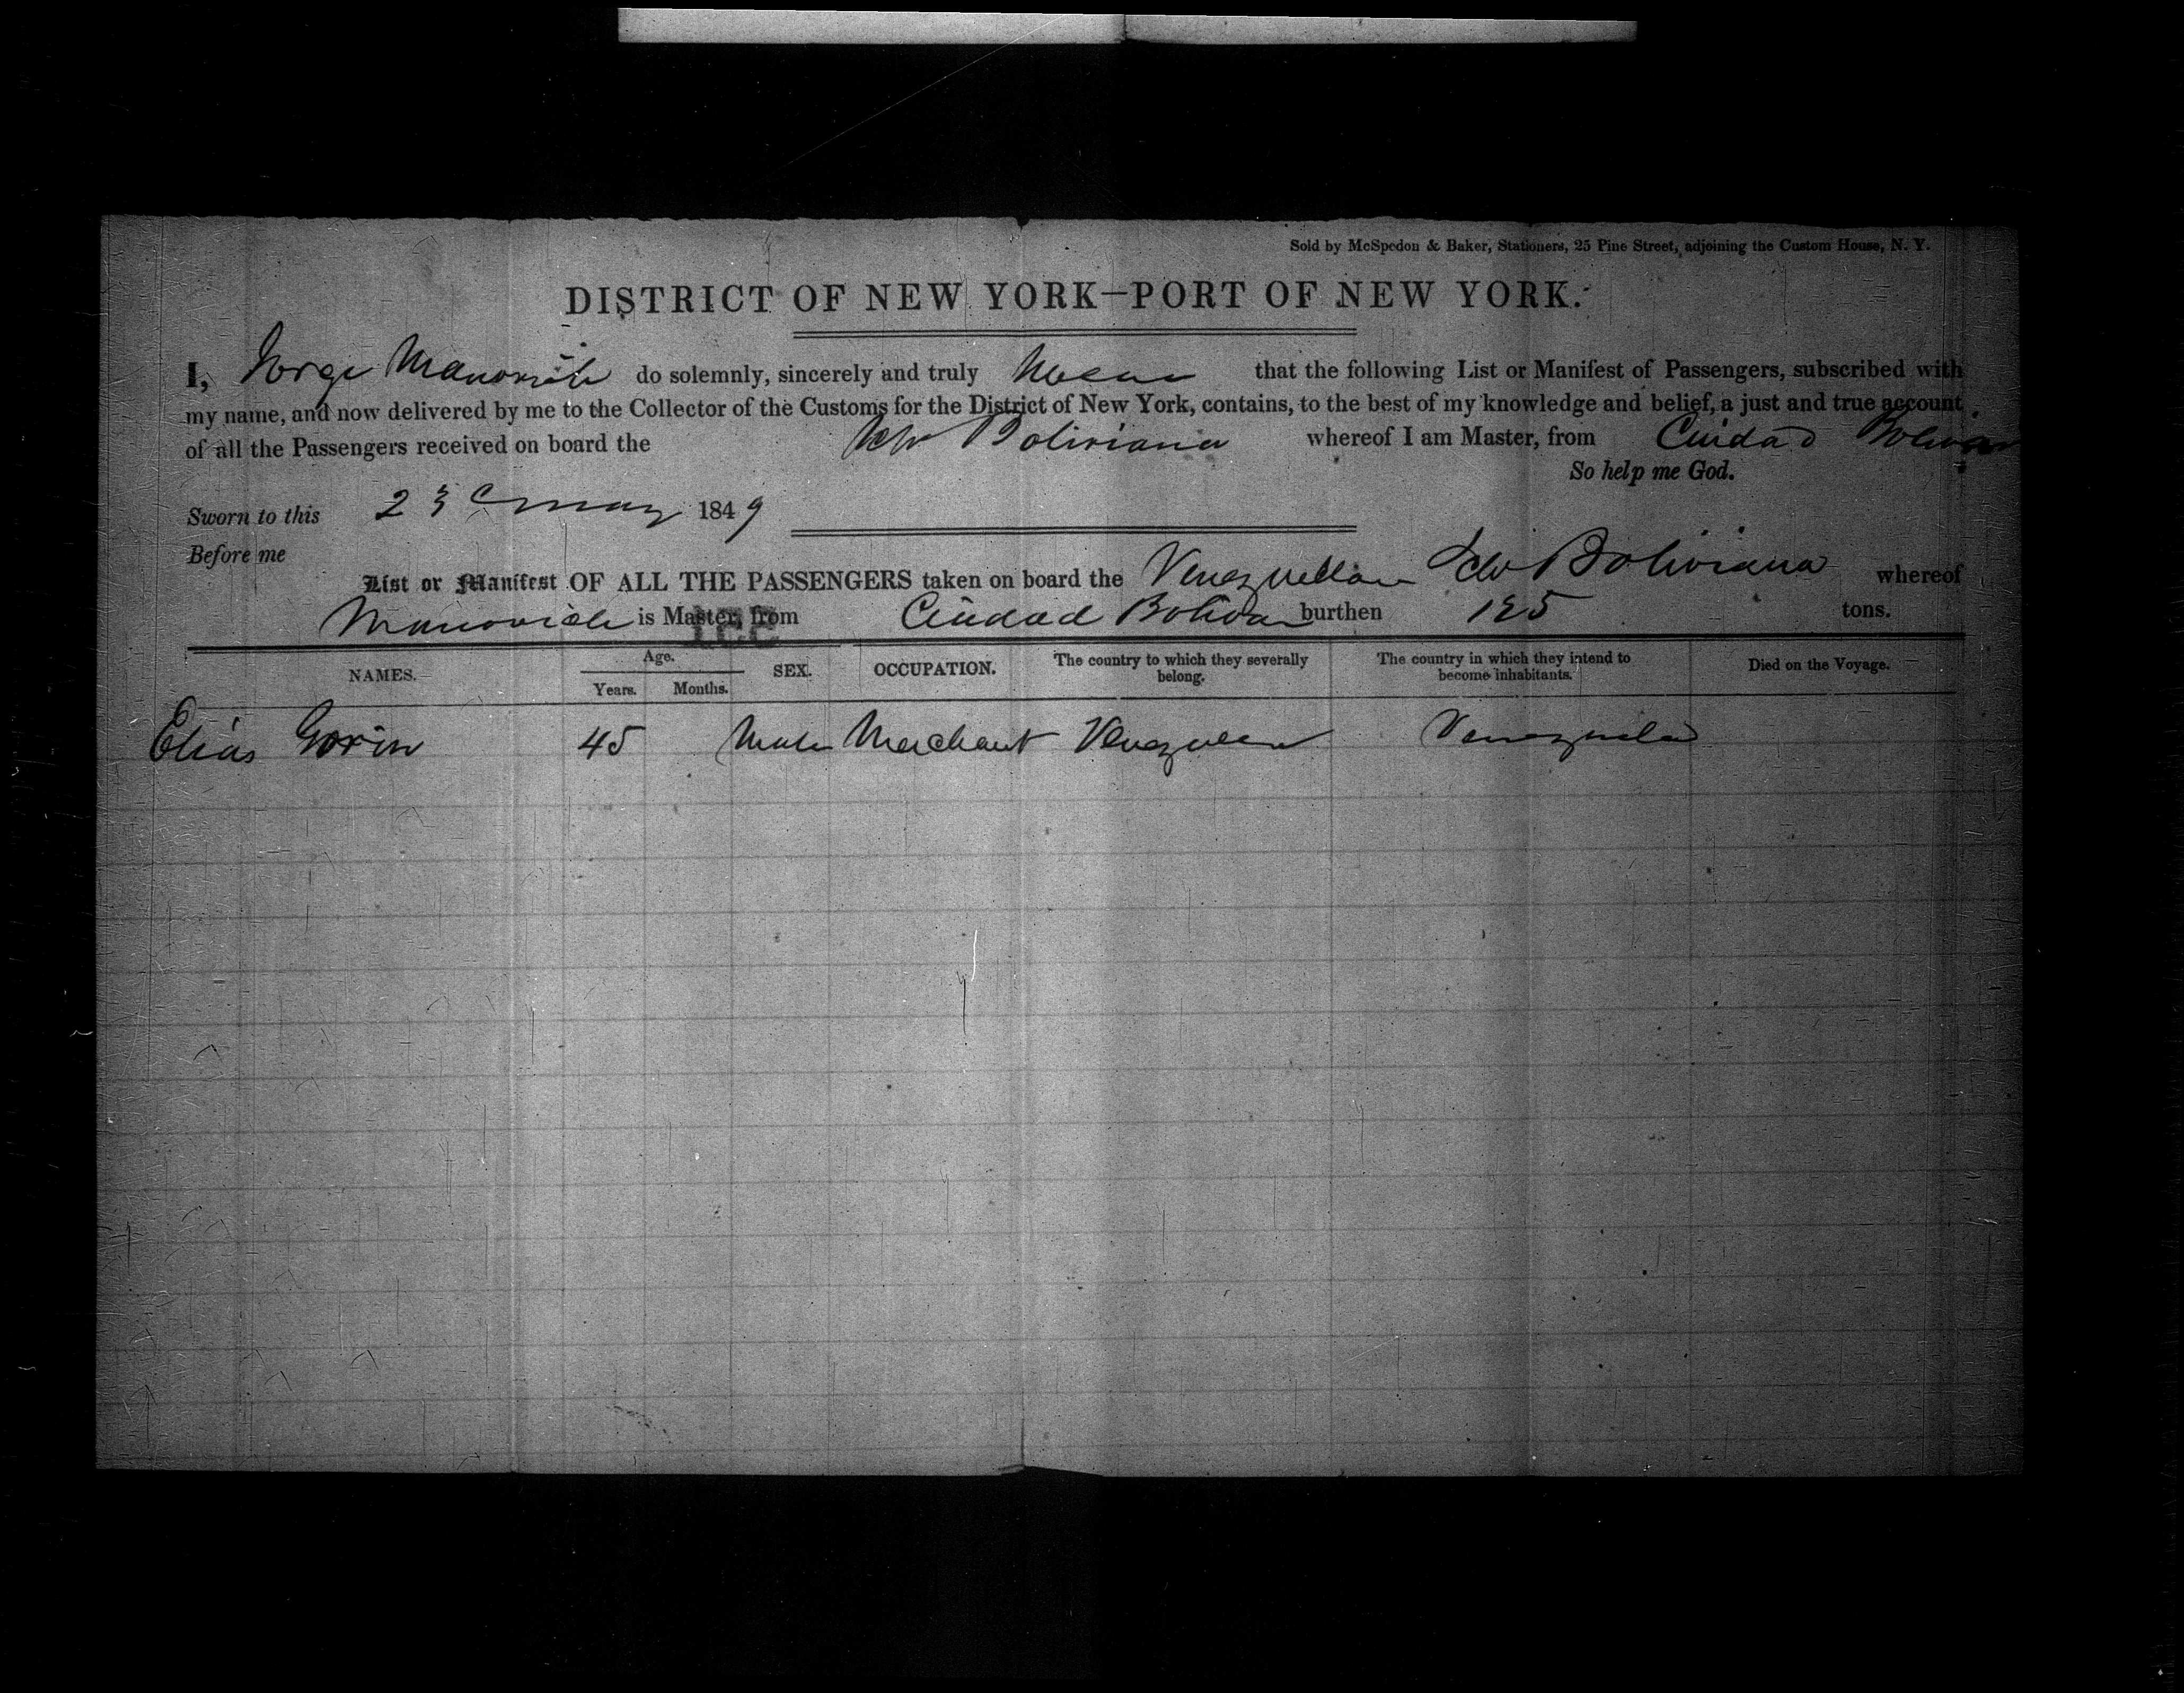 Sold by McSpedon & Baker, Stationers, 25 Pine Street, adjoining the Custom House, N. Y.
DISTRICT OF NEW YORK—PORT OF NEW YORK.
I, Jorge Manovich do solemnly, sincerely and truly Swear that the following List or Manifest of Passengers, subscribed with
my name, and now delivered by me to the Collector of the Customs for the District of New York, contains, to the best of my knowledge and belief, a just and true account
of all the Passengers received on board the Schr Boliviana whereof I am Master, from Ciudad Bolivar
So help me God.
Sworn to this 23 May 1849
Before me
List or Manifest OF ALL THE PASSENGERS taken on board the Venezuelan Schr Boliviana whereof
Manovich is Master, from Ciudad Bolivar burthen 125 tons.
NAMES. Age. Years. Months. SEX. OCCUPATION. The country to which they severally belong. The country in which they intend to become inhabitants. Died on the Voyage.
Elias Gorin 45 Male Merchant Venezuela Venezuela